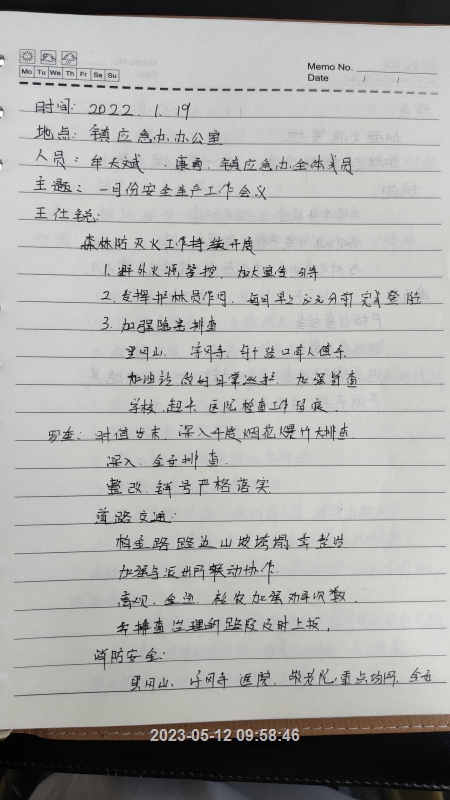 Mo Tu We Th Fr Sa Su
Memo No.
Date / /
时间: 2022.1.19
地点: 镇应急办办公室
人员: 牟天斌、康勇、镇应急办全体成员
主题: 一月份安全生产工作会议
王仕锐:
森林防灭火工作持续开展
1. 野外火源管控, 加大宣传
2. 发挥护林员作用, 每日早上 完成登陆
3. 加强隐患排查
黑冈山、 每个路口有人值守
加油站做好日常巡护, 加强督查
学校、超市、医院检查工作留底
时值岁末, 深入开展烟花爆竹大排查
深入、全面排查
整改、销号严格落实
道路交通:
柏圭路路边山坡垮塌
加强与派出所联动协作
加强劝导次数,
排查 的路段及时上报,
消防安全:
黑冈山、 医院、敬老院重点场所,
2023-05-12 09:58:46